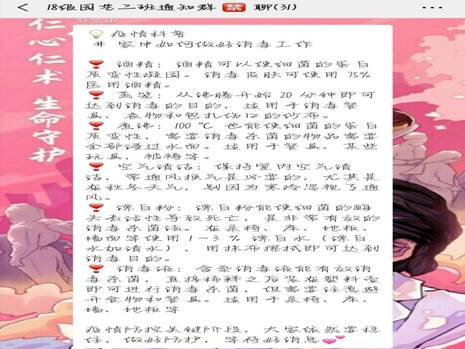 18级园艺二班通知群🈲聊(31)
仁心仁术 生命守护
💡疫情科普
# 家中如何做好消毒工作
❣酒精：酒精可以使细菌的蛋白
质变性凝固。消毒皮肤可使用75%
医用酒精。
❣蒸笼：从沸腾开始20分钟即可
达到消毒的目的，适用于消毒餐
具、衣物和包扎伤口的纱布。
❣煮沸：100℃ 也能使细菌的蛋白
质变性，需要消毒杀菌的物品需要
全部浸过水面。适用于餐具、某些
玩具、奶瓶等。
❣空气清洁：保持室内空气清
洁，常通风换气是必要的，尤其是
在秋冬天气，别因为寒冷忽视了通
风。
❣漂白粉：漂白粉能使细菌的酶
失去活性导致死亡，是非常有效的
消毒杀菌法。在桌椅、床、地板、
墙面等使用1-3％ 漂白水（漂白
水加清水），用抹布擦拭即可达到
消毒目的。
❣消毒液：含氯消毒液能有效消
毒杀菌，直接稀释之后装在塑料壶
即可进行消毒杀菌，但需要注意避
开食物和餐具。适用于桌椅、床、
墙、地板等
疫情防控关键阶段，大家依然要稳
住，做好防护，等待好消息💕